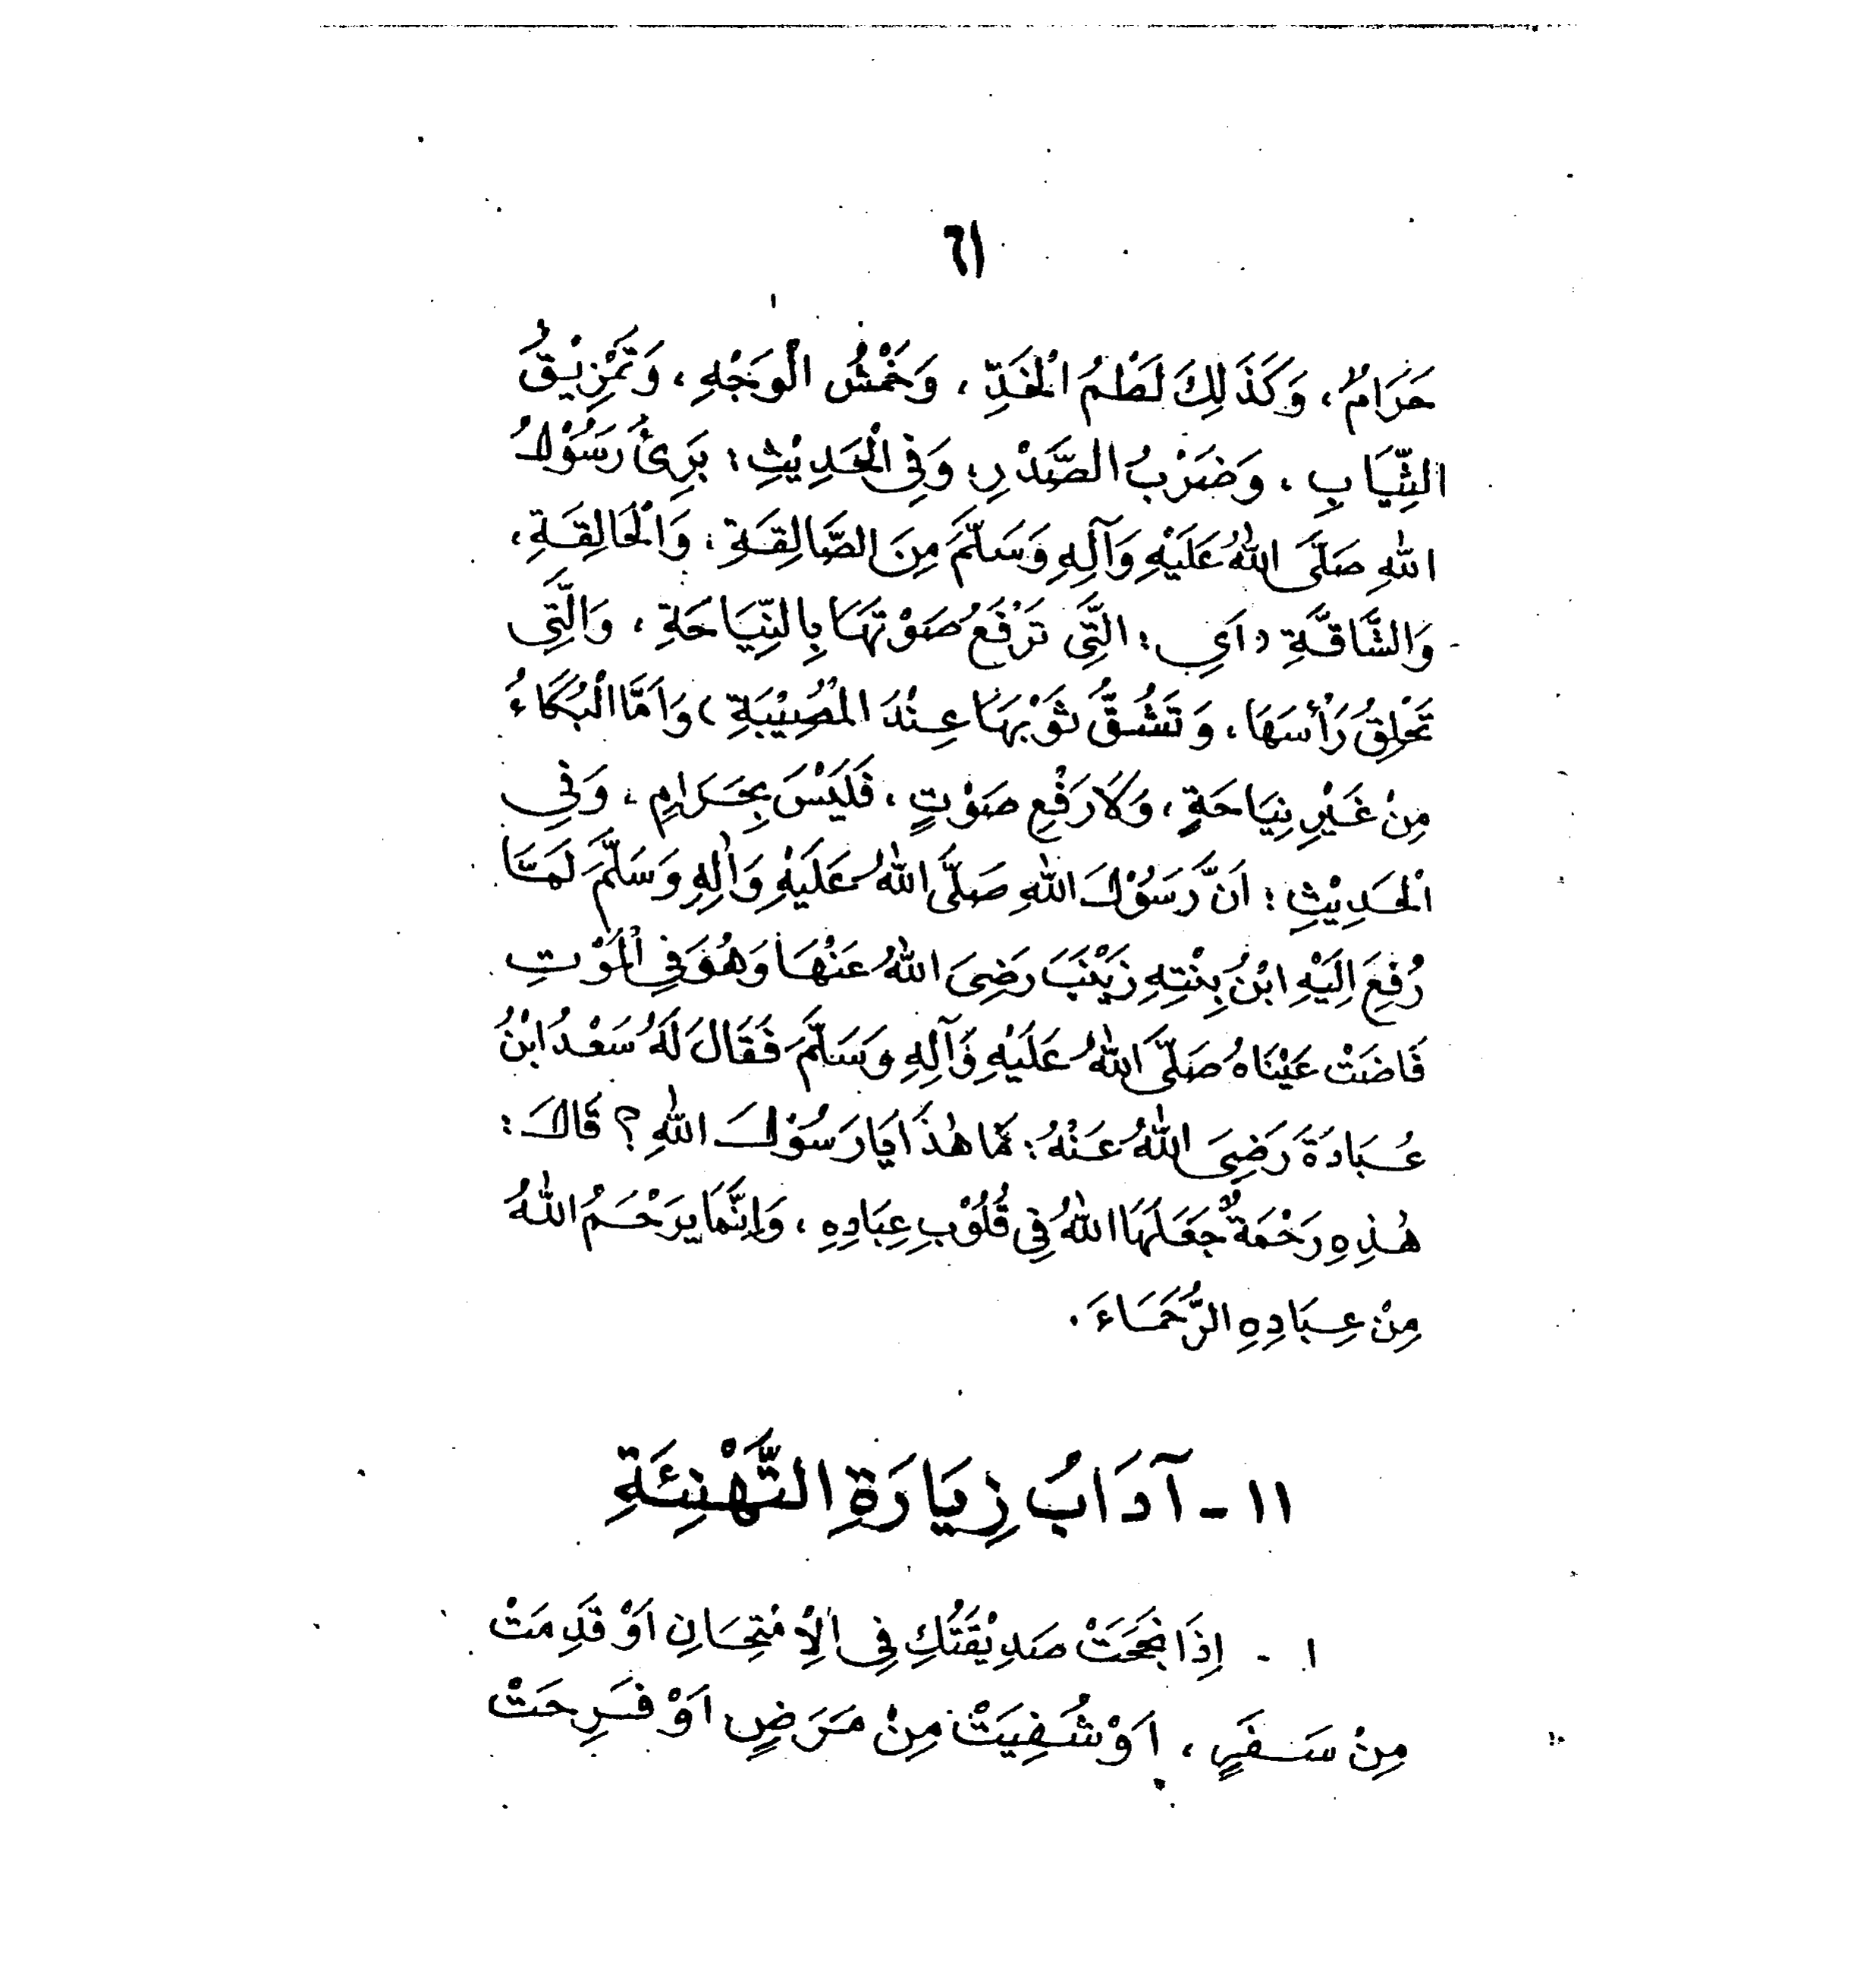 ٦١
حَرَامٌ، وَكَذَلِكَ لَطْمُ الْخَدِّ، وَخَمْشُ الْوَجْهِ، وَتَمْزِيْقُ
الثِّيَابِ، وَضَرْبُ الصَّدْرِ، وَفِي الْحَدِيْثِ: بَرِئَ رَسُوْلُ
اللهِ صَلَّى اللهُ عَلَيْهِ وَآلِهِ وَسَلَّمَ مِنَ الصَّالِقَةِ، وَالْحَالِقَةِ،
وَالشَّاقَّةِ (اَيِ: الَّتِي تَرْفَعُ صَوْتَهَا بِالنِّيَاحَةِ، وَالَّتِي
تَحْلِقُ رَأْسَهَا، وَتَشُقُّ ثَوْبَهَا عِنْدَ الْمُصِيْبَةِ) وَاَمَّا الْبُكَاءُ
مِنْ غَيْرِ نِيَاحَةٍ، وَلَا رَفْعِ صَوْتٍ، فَلَيْسَ بِحَرَامٍ، وَفِي
الْحَدِيْثِ: اَنَّ رَسُوْلَ اللهِ صَلَّى اللهُ عَلَيْهِ وَاٰلِهِ وَسَلَّمَ لَمَّا
رُفِعَ اِلَيْهِ ابْنُ بِنْتِهِ زَيْنَبَ رَضِيَ اللهُ عَنْهَا وَهُوَ فِي الْمَوْتِ
فَاضَتْ عَيْنَاهُ صَلَّى اللهُ عَلَيْهِ وَآلِهِ وَسَلَّمَ فَقَالَ لَهُ سَعْدُ ابْنُ
عُبَادَةَ رَضِيَ اللهُ عَنْهُ: مَا هٰذَا يَا رَسُوْلَ اللهِ؟ قَالَ:
هٰذِهِ رَحْمَةٌ جَعَلَهَا اللهُ فِي قُلُوْبِ عِبَادِهِ، وَاِنَّمَا يَرْحَمُ اللهُ
مِنْ عِبَادِهِ الرُّحَمَاءَ.
١١ - آدَابُ زِيَارَةِ التَّهْنِئَةِ
١ - اِذَا نَجَحَتْ صَدِيْقَتُكِ فِي الْاِمْتِحَانِ اَوْ قَدِمَتْ
مِنْ سَفَرٍ، اَوْ شُفِيَتْ مِنْ مَرَضٍ اَوْ فَرِحَتْ